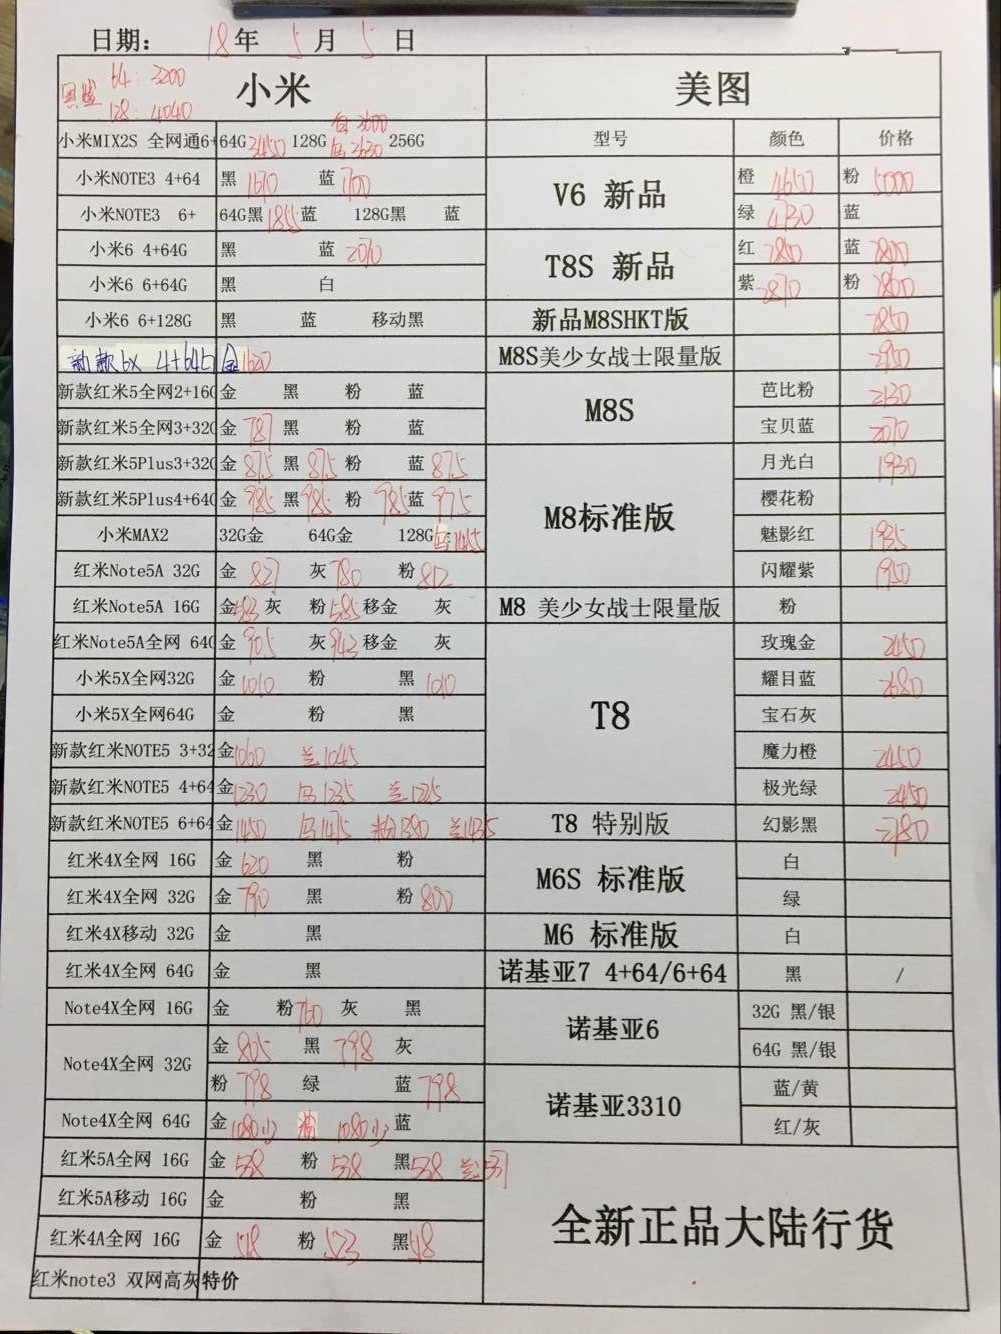 日期： 18年 5月 5日
64：3200
128：4040
小米 美图
白3600
小米MIX2S 全网通6+ 64G 3450 128G 256G 型号 颜色 价格
小米NOTE3 4+64 黑 1610 蓝 1700 V6 新品 橙 4650 粉 5000
小米NOTE3 6+ 64G黑 1855 蓝 128G黑 蓝 绿 4730 蓝
小米6 4+64G 黑 蓝 2070 T8S 新品 红 2850 蓝 2800
小米6 6+64G 黑 白 紫 2870 粉 2860
小米6 6+128G 黑 蓝 移动黑 新品M8SHKT版 2850
新款6X 4+64G 金 1620 M8S美少女战士限量版 2950
新款红米5全网2+16G 金 黑 粉 蓝 M8S 芭比粉 2130
新款红米5全网3+32G 金 787 黑 粉 蓝 宝贝蓝 2070
新款红米5Plus3+32G 金 875 黑 875 粉 蓝 875 M8标准版 月光白 1930
新款红米5Plus4+64G 金 985 黑 985 粉 985 蓝 975 樱花粉
小米MAX2 32G金 64G金 128G 1455 魅影红 1935
红米Note5A 32G 金 827 灰 780 粉 812 闪耀紫 1950
红米Note5A 16G 金 583 灰 粉 585 移金 灰 M8 美少女战士限量版 粉
红米Note5A全网 64G 金 905 灰 943 移金 灰 T8 玫瑰金 2450
小米5X全网32G 金 1010 粉 黑 1010 耀目蓝 2680
小米5X全网64G 金 粉 黑 宝石灰
新款红米NOTE5 3+32 金 1060 兰1045 魔力橙 2450
新款红米NOTE5 4+64 金 1230 1235 兰1225 极光绿 2450
新款红米NOTE5 6+64 金 1450 1415 粉1380 兰1435 T8 特别版 幻影黑 2780
红米4X全网 16G 金 620 黑 粉 M6S 标准版 白
红米4X全网 32G 金 790 黑 粉 800 绿
红米4X移动 32G 金 黑 M6 标准版 白
红米4X全网 64G 金 黑 诺基亚7 4+64/6+64 黑 /
Note4X全网 16G 金 粉 760 灰 黑 诺基亚6 32G 黑/银
Note4X全网 32G 金 805 黑 798 灰 64G 黑/银
粉 798 绿 蓝 798 诺基亚3310 蓝/黄
Note4X全网 64G 金 1080少 1080少 蓝 红/灰
红米5A全网 16G 金 538 粉 538 黑 538 兰537
红米5A移动 16G 金 粉 黑
红米4A全网 16G 金 518 粉 523 黑 518 全新正品大陆行货
红米note3 双网高灰 特价